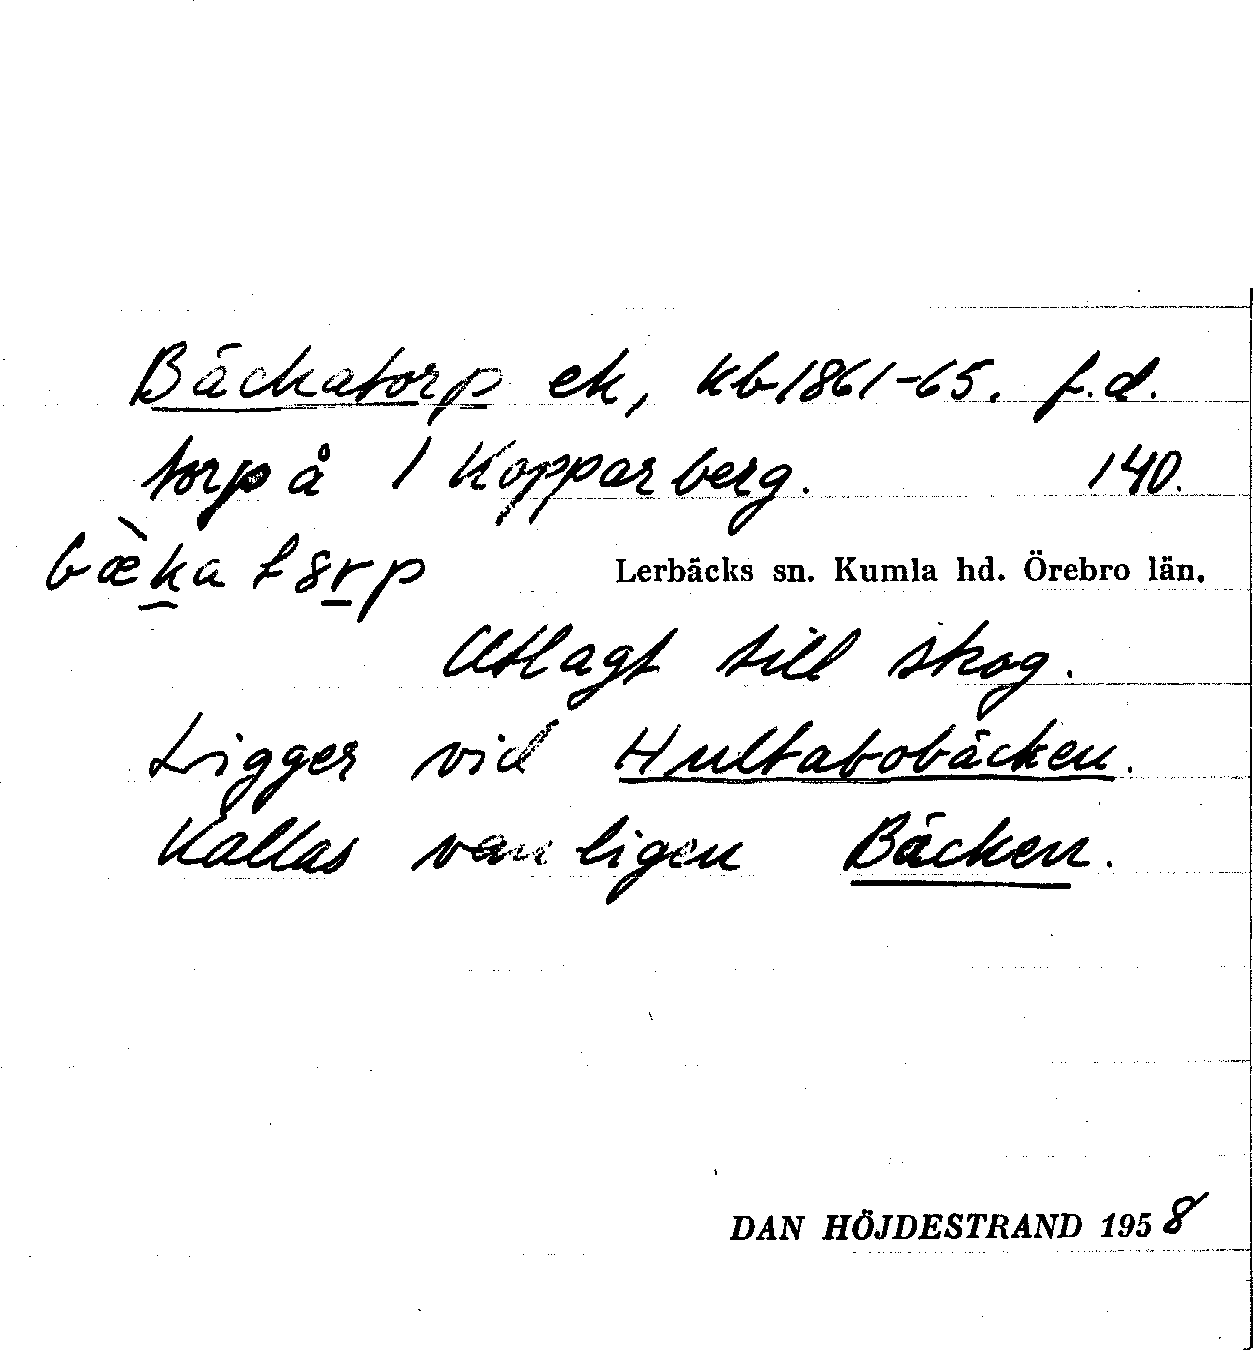 Bäckatorp ek, kb 1861-65. f.d.
torp å 1 Kopparberg. 140.
bæ̀ka t8rp
Lerbäcks sn. Kumla hd. Örebro län.
Utlagt till skog.
Ligger vid Hultabobäcken.
Kallas vanligen Bäcken.
DAN HÖJDESTRAND 1958